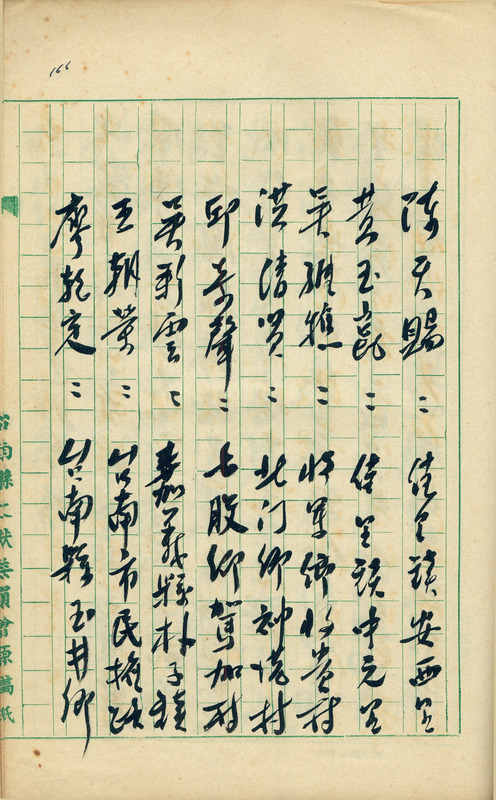 166
陳天賜：佳里鎮安西里
黃玉崑：佳里鎮中元里
吳維樵：將軍鄉將貴村
洪清叟：北门鄉蚵寮村
邱景聲：七股鄉篤加村
吳彩雲：嘉義縣朴子鎮
王朝榮：台南市民權路
廖乾定：台南縣玉井鄉
台南縣文献委員會原稿紙